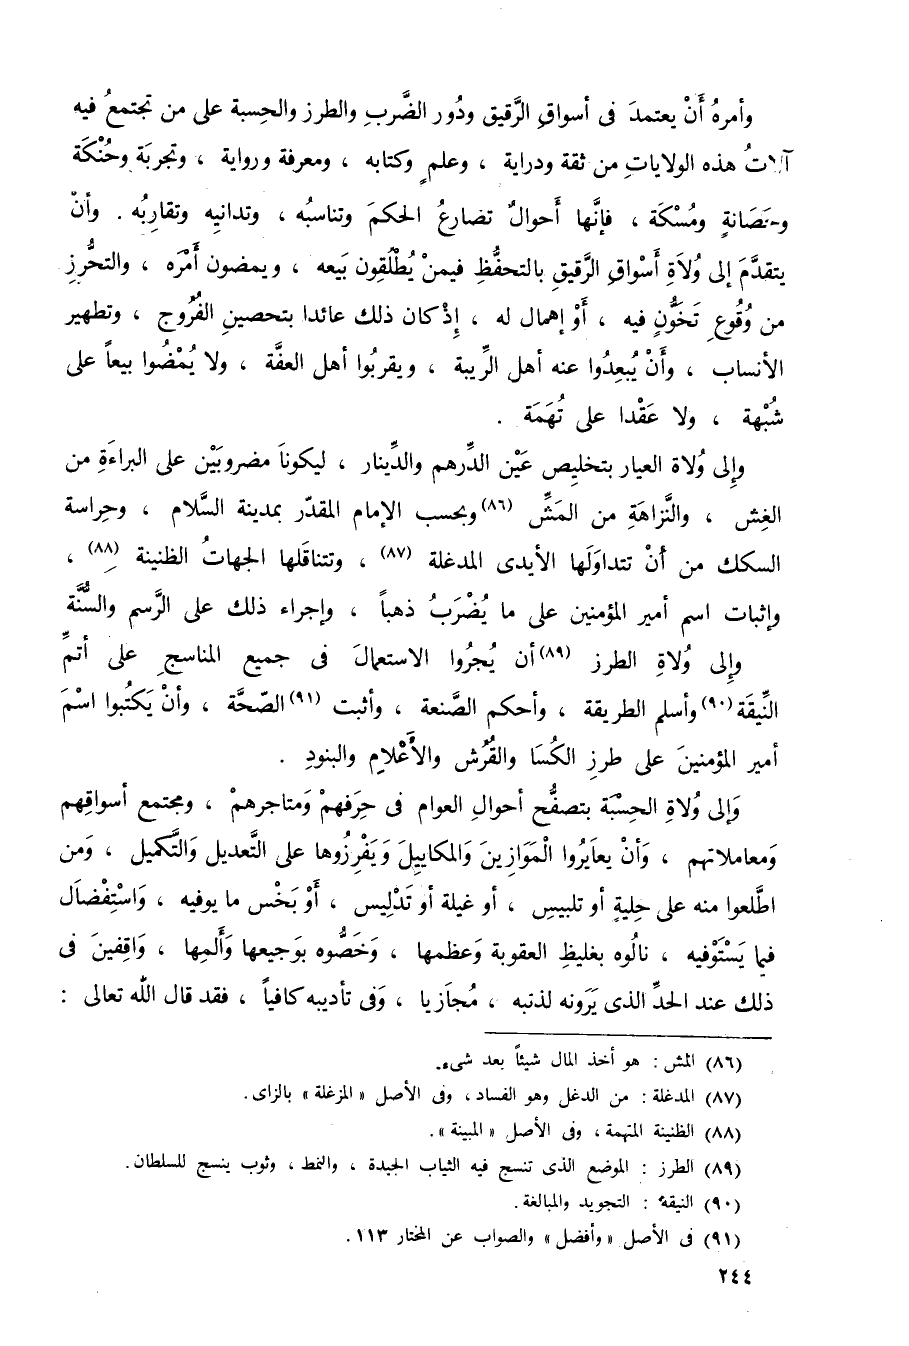 وأمرهُ أَنْ يعتمدَ فى أسواقِ الرَّقيق ودُور الضَّربِ والطرز والحِسبة على من تجتمعُ فيه
آلاتُ هذه الولاياتِ من ثقة ودراية ، وعلمٍ وكتابه ، ومعرفة ورواية ، وتجربَة وحُنْكَة
وحَصَانةٍ ومُسْكَة ، فإنَّها أَحوالٌ تضارعُ الحكمَ وتناسبُه ، وتدانيه وتقاربُه . وأنْ
يتقدَّمَ إلى وُلاَةِ أَسْواقِ الرَّقيقِ بالتحفُّظِ فيمنْ يُطْلُقِون بَيعه ، ويمضون أَمْرَه ، والتحرُّزِ
من وُقُوعِ تَخَوُّنٍ فيه ، أَوْ إهمال له ، إِذْ كان ذلك عائدا بتحصينِ الفُرُوج ، وتطهير
الأنساب ، وأَنْ يُبعِدُوا عنه أهل الرِّيبة ، ويقربُوا أهل العفَّة ، ولا يُمْضُوا بيعاً على
شُبْهة ، ولا عَقْدا على تُهَمَة .
وإِلى وُلاة العيار بتخليص عَيْن الدِّرهم والدِّينار ، ليكوناَ مضروبَيْن على البراءَةِ من
الغِش ، والنَّزاهَةِ من المَشِّ (٨٦) وبحسب الإمام المقدّر بمدينة السَّلام ، وحِراسة
السكك من أَنْ تتداوَلَها الأيدى المدغلة (٨٧) ، وتتناقَلها الجهاتُ الظنينة (٨٨) ،
وإثبات اسم أمير المؤمنين على ما يُضْرَبُ ذهباً ، وإجراء ذلك على الرَّسم والسُّنَّة
وإِلى وُلاةِ الطرز (٨٩) أن يُجرُوا الاستعمالَ فى جميع المناسجِ على أتمِّ
النِّيقَة (٩٠) وأسلم الطريقة ، وأحكم الصَّنعة ، وأثبت (٩١) الصّحَّة ، وأنْ يَكتُبوا اسْمَ
أمير المؤمنينَ على طرزِ الكُسَا والفُرُش والأَعْلامِ والبنودِ .
وَإلى وُلاةِ الحِسْبَة بتصفُّح أحوالِ العوام فى حِرَفهمْ وَمتاجرهمْ ، ومجتمع أسواقِهم
وَمعاملاتهم ، وَأنْ يعاَيرُوا الْمَوَازِينَ وَالمكاييلَ وَيَفْرِزُوها على التَّعديل وَالتَّكميل ، وَمن
اطَّلعوا منه على حِليةٍ أو تلبيس ، أو غيلة أو تَدْلِيس ، أَوْ بَخْس ما يوفيه ، وَاسْتِفْضاَل
فيما يَسْتَوْفيه ، نالُوه بغليظِ العقوبة وَعظمها ، وَخَصُّوه بوَجيعها وَأَلمِها ، وَاقِفينَ فى
ذلك عند الحدِّ الذى يَرَونه لذنبه ، مُجاَزيا ، وَفى تأديبه كافياً ، فقد قال اللّه تعالى :
(٨٦) المش : هو أخذ المال شيئاً بعد شىء.
(٨٧) المدغلة : من الدغل وهو الفساد ، وفى الأصل « المزغلة » بالزاى .
(٨٨) الظنينة المتهمة ، وفى الأصل « المبينة » .
(٨٩) الطرز : الموضع الذى تنسج فيه الثياب الجيدة ، والنمط ، وثوب ينسج للسلطان .
(٩٠) النيقة : التجويد والمبالغة .
(٩١) فى الأصل « وأفضل » والصواب عن المختار ١١٣ .
٢٤٤